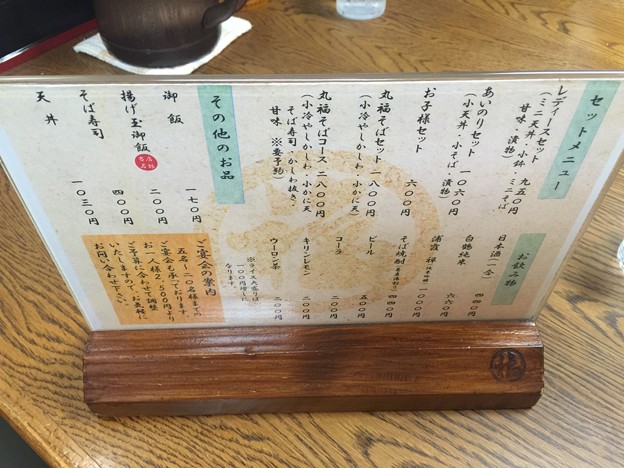 セットメニュー
レディースセット 九五〇円
(ミニ天丼・小鉢・ミニそば
甘味・漬物)
あいのりセット 一〇六〇円
(小天丼・小そば・漬物)
お子様セット 六〇〇円
丸福そばセット 一八〇〇円
(小冷やしかしわ・小かに天)
丸福そばコース 二八〇〇円
(小冷やしかしわ・小かに天
そば寿司・かしわ抜き・
甘味 ※要予約)
お飲み物
日本酒(一合) 四四〇円
白鶴純米 六六〇円
浦霞 禅 一〇〇〇円
そば焼酎 四四〇円
ビール 五〇〇円
コーラ 二〇〇円
キリンレモン 二〇〇円
ウーロン茶 二〇〇円
※ライス大盛りは
一〇〇円増しに
なります。
その他のお品
御飯 一七〇円
揚げ玉御飯 二〇〇円
当店名物
そば寿司 四〇〇円
天丼 一〇三〇円
ご宴会の案内
五名〜二〇名様までの
ご宴会も承っております。
お一人様2,500円より
ご予算に合わせて調整
いたしますので、お気軽に
お問い合わせ下さい
福